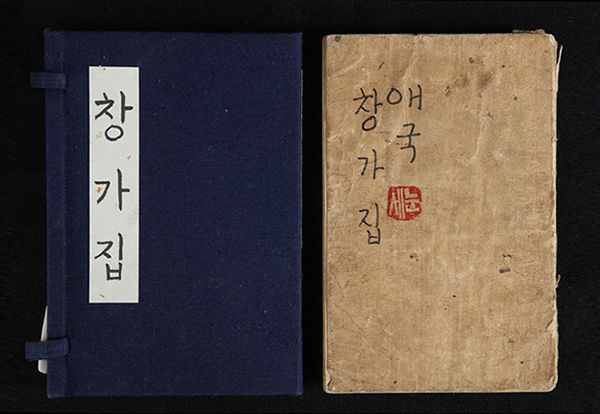 창가집
애국
창가집
세눈